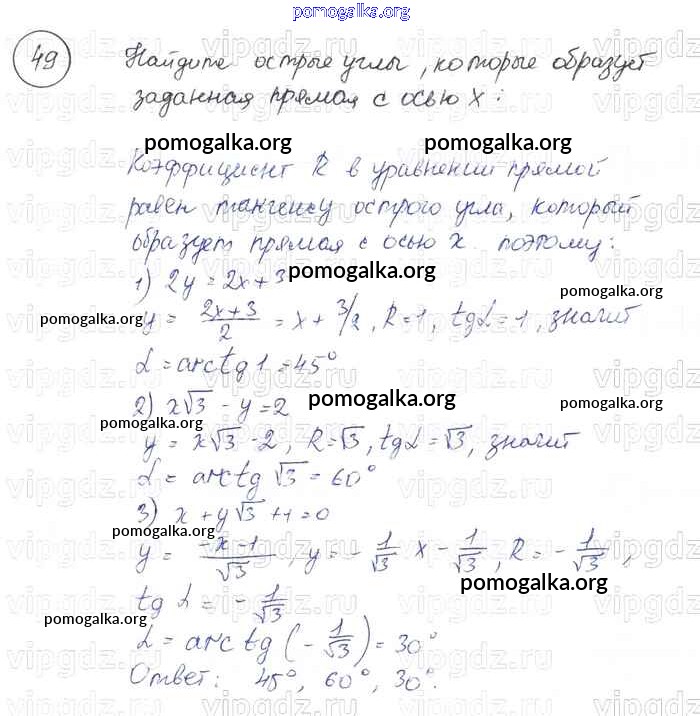 pomogalka.org
49 Найдите острые углы, которые образует
заданная прямая с осью x:
pomogalka.org pomogalka.org
Коэффициент R в уравнении прямой
равен тангенсу острого угла, который
образует прямая с осью x. поэтому:
pomogalka.org
1) 2y = 2x+3
pomogalka.org
pomogalka.org
y = (2x+3)/2 = x + 3/2, R=1, tgL=1, значит
L = arctg 1 = 45°
pomogalka.org
2) x√3 - y = 2
pomogalka.org
pomogalka.org
y = x√3 - 2, R=√3, tgL = √3, значит
L = arctg √3 = 60°
3) x + y√3 +1 = 0
pomogalka.org
y = (-x-1)/√3, y = - 1/√3 x - 1/√3, R = - 1/√3,
pomogalka.org
tg L = - 1/√3
pomogalka.org
L = arctg (- 1/√3) = 30°
Ответ: 45°, 60°, 30°.